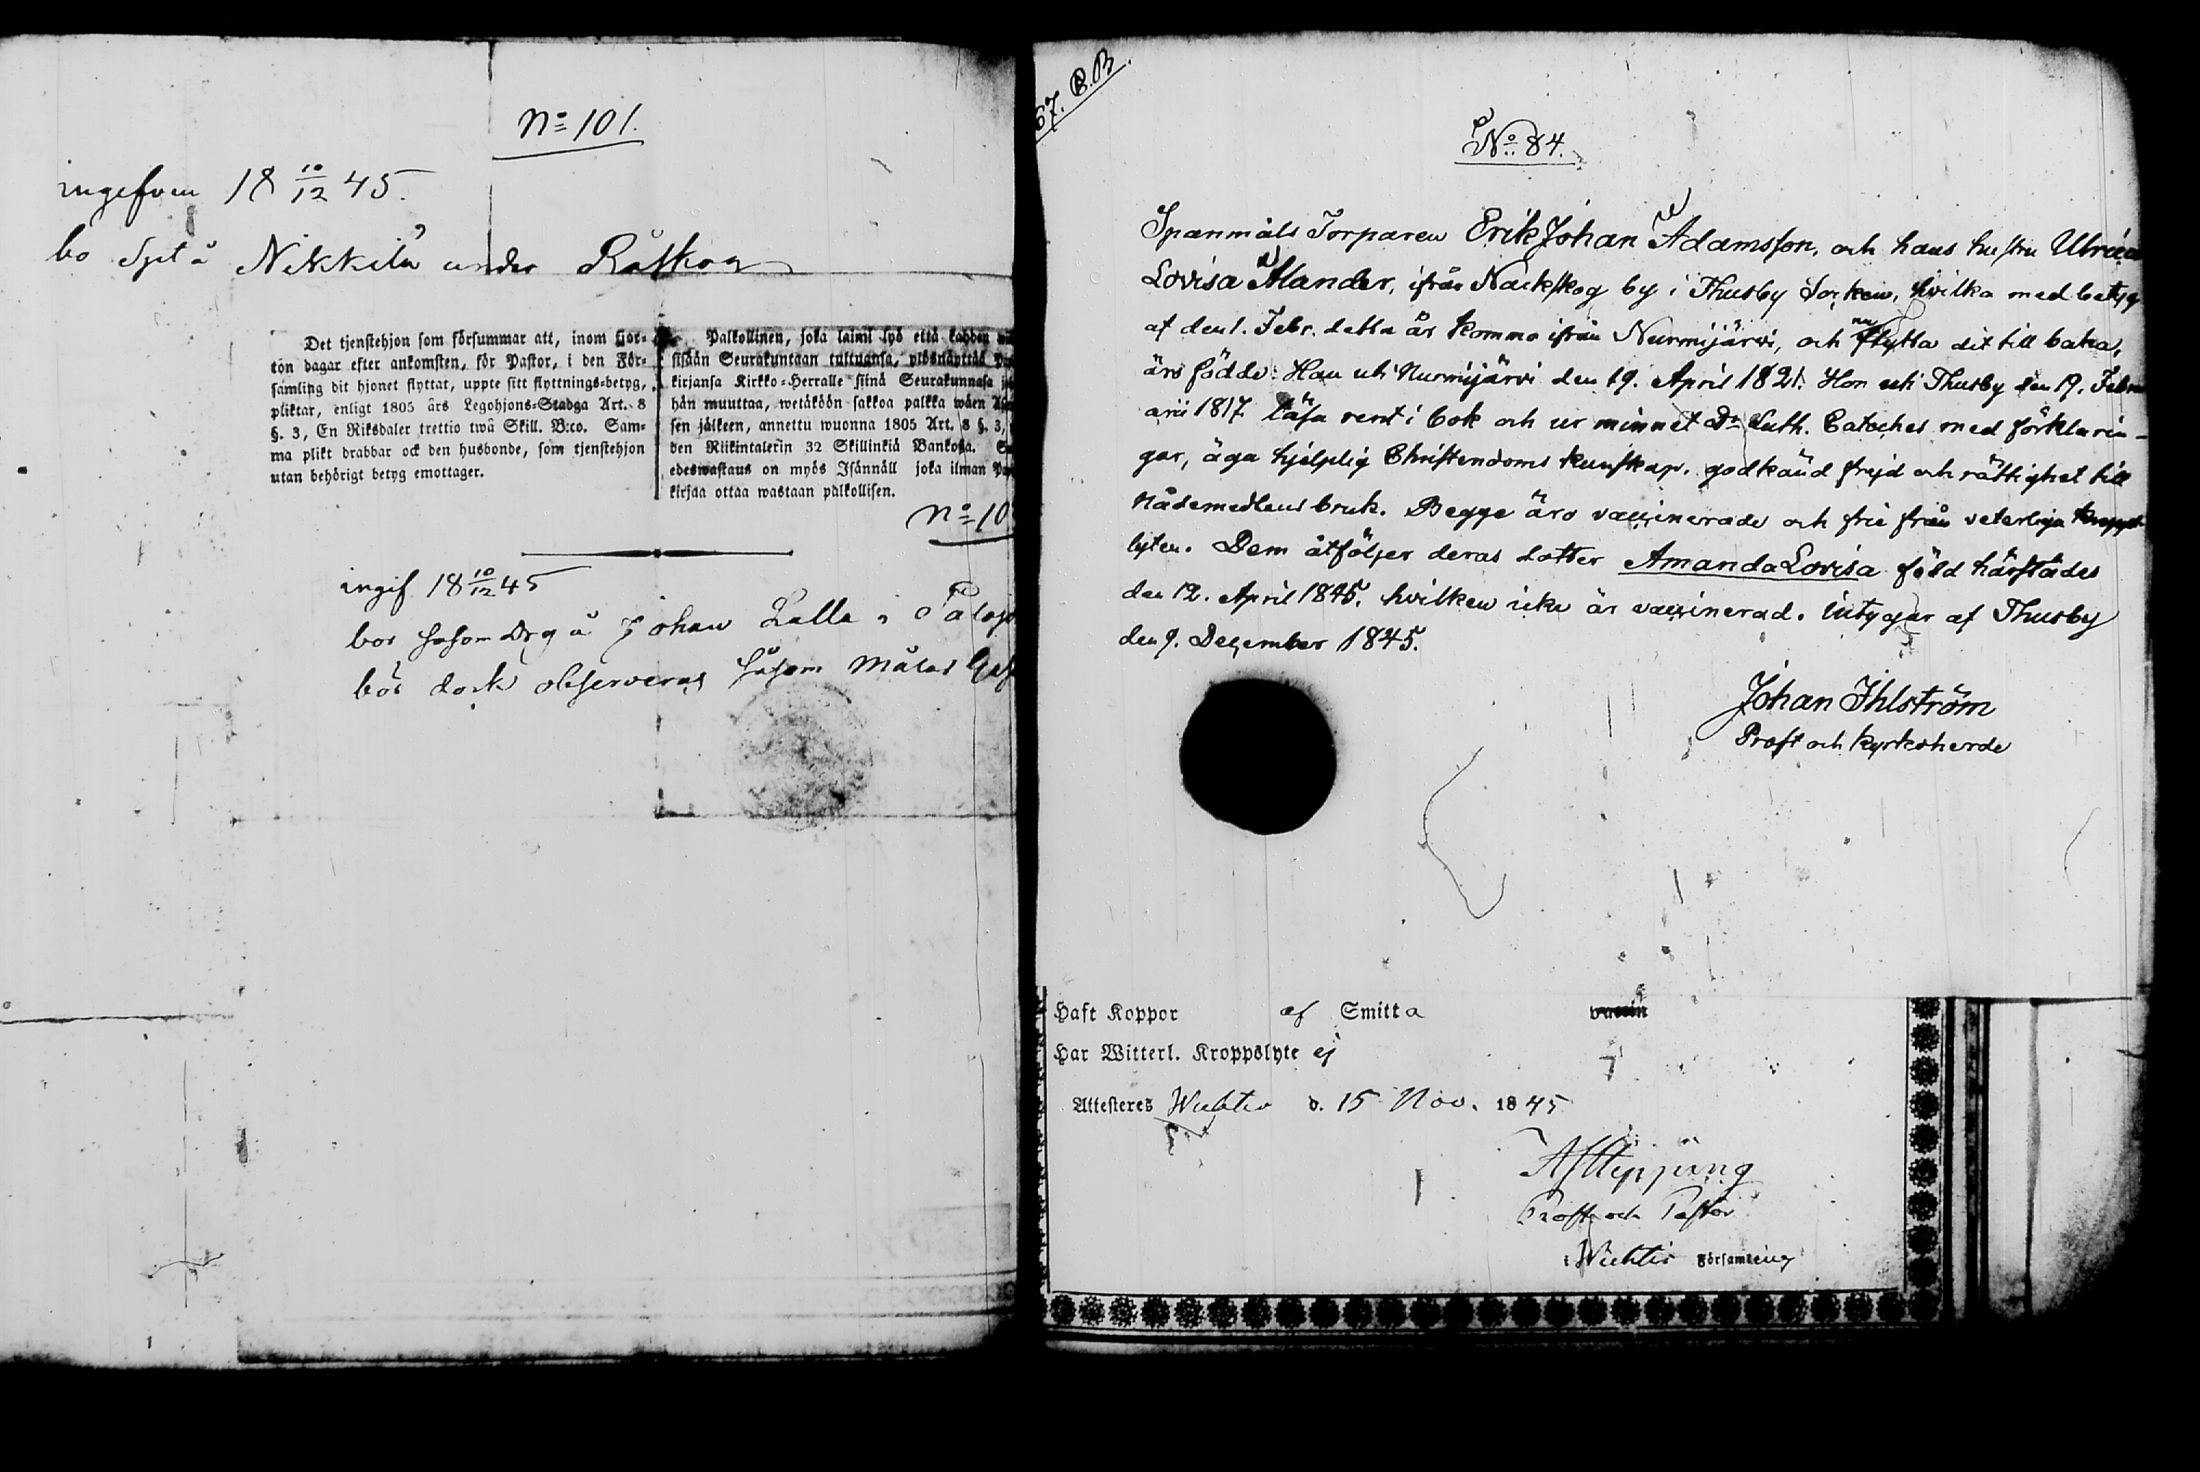 No 101.
ingifven 18 10/12 45.
bo Spst å Nikkilä under Råskog
Det tjenstehjon som försummar att, inom fjor-
ton dagar efter ankomsten, för Pastor, i den För-
samling dit hjonet flyttat, uppte sitt flyttnings-betyg,
pliktar, enligt 1805 års Legohjons-Stadga Art. 8
§. 3, En Riksdaler trettio twå Skill. B:co. Sam-
ma plikt drabbar ock den husbonde, som tjenstehjon
utan behörigt betyg emottager.
Palkollinen, joka laimi lyö että kahden
sisään Seurakuntaan tultuansa, ylösnäyttää
kirjansa Kirkko-Herralle siinä Seurakunnasa
hän muuttaa, wetäköön sakkoa palkka wäen
sen jälkeen, annettu wuonna 1805 Art. 8 §. 3,
den Riikintalerin 32 Skillinkiä Bankosa.
edeswastaus on myös Isännäll joka ilman
kirjaa ottaa wastaan palkollisen.
No 10
ingif 18 10/12 45
bor såsom Drg å Johan Lalla i
bör dock observeras såsom
67. B.B.
No 84.
Spanmåls Torparen Erik Johan Adamsson, och hans hustru Ulrica
Lovisa Alander, ifrån Nackskog by i Thusby Socken, hvilka med betyg
af den 1. Febr. detta år kommo ifrån Nurmijärvi, och nu flytta dit till baka,
äro födde: Han uti Nurmijärvi den 19. April 1821. Hon uti Thusby den 19. Febru
arii 1817. läsa rent i bok och ur minnet Dr Luth. Cateches med förklarin-
gar, äga hjelplig Christendoms kunskap, godkänd frejd och rättighet till
Nådemedlens bruk. Begge äro vaccinerade och frie från veterliga kropps-
lyten. Dem åtföljer deras dotter Amanda Lovisa född härstädes
den 12. April 1845. hvilken icke är vaccinerad. intygar af Thusby
den 9. December 1845.
Johan Ihlström
Prost och Kyrkoherde
Haft Koppor af Smitta
Har Witterl. Kroppslyte ej
Attesteres Wichtis d. 15 Nov. 1845
Prost och Pastor
i Wichtis Församling